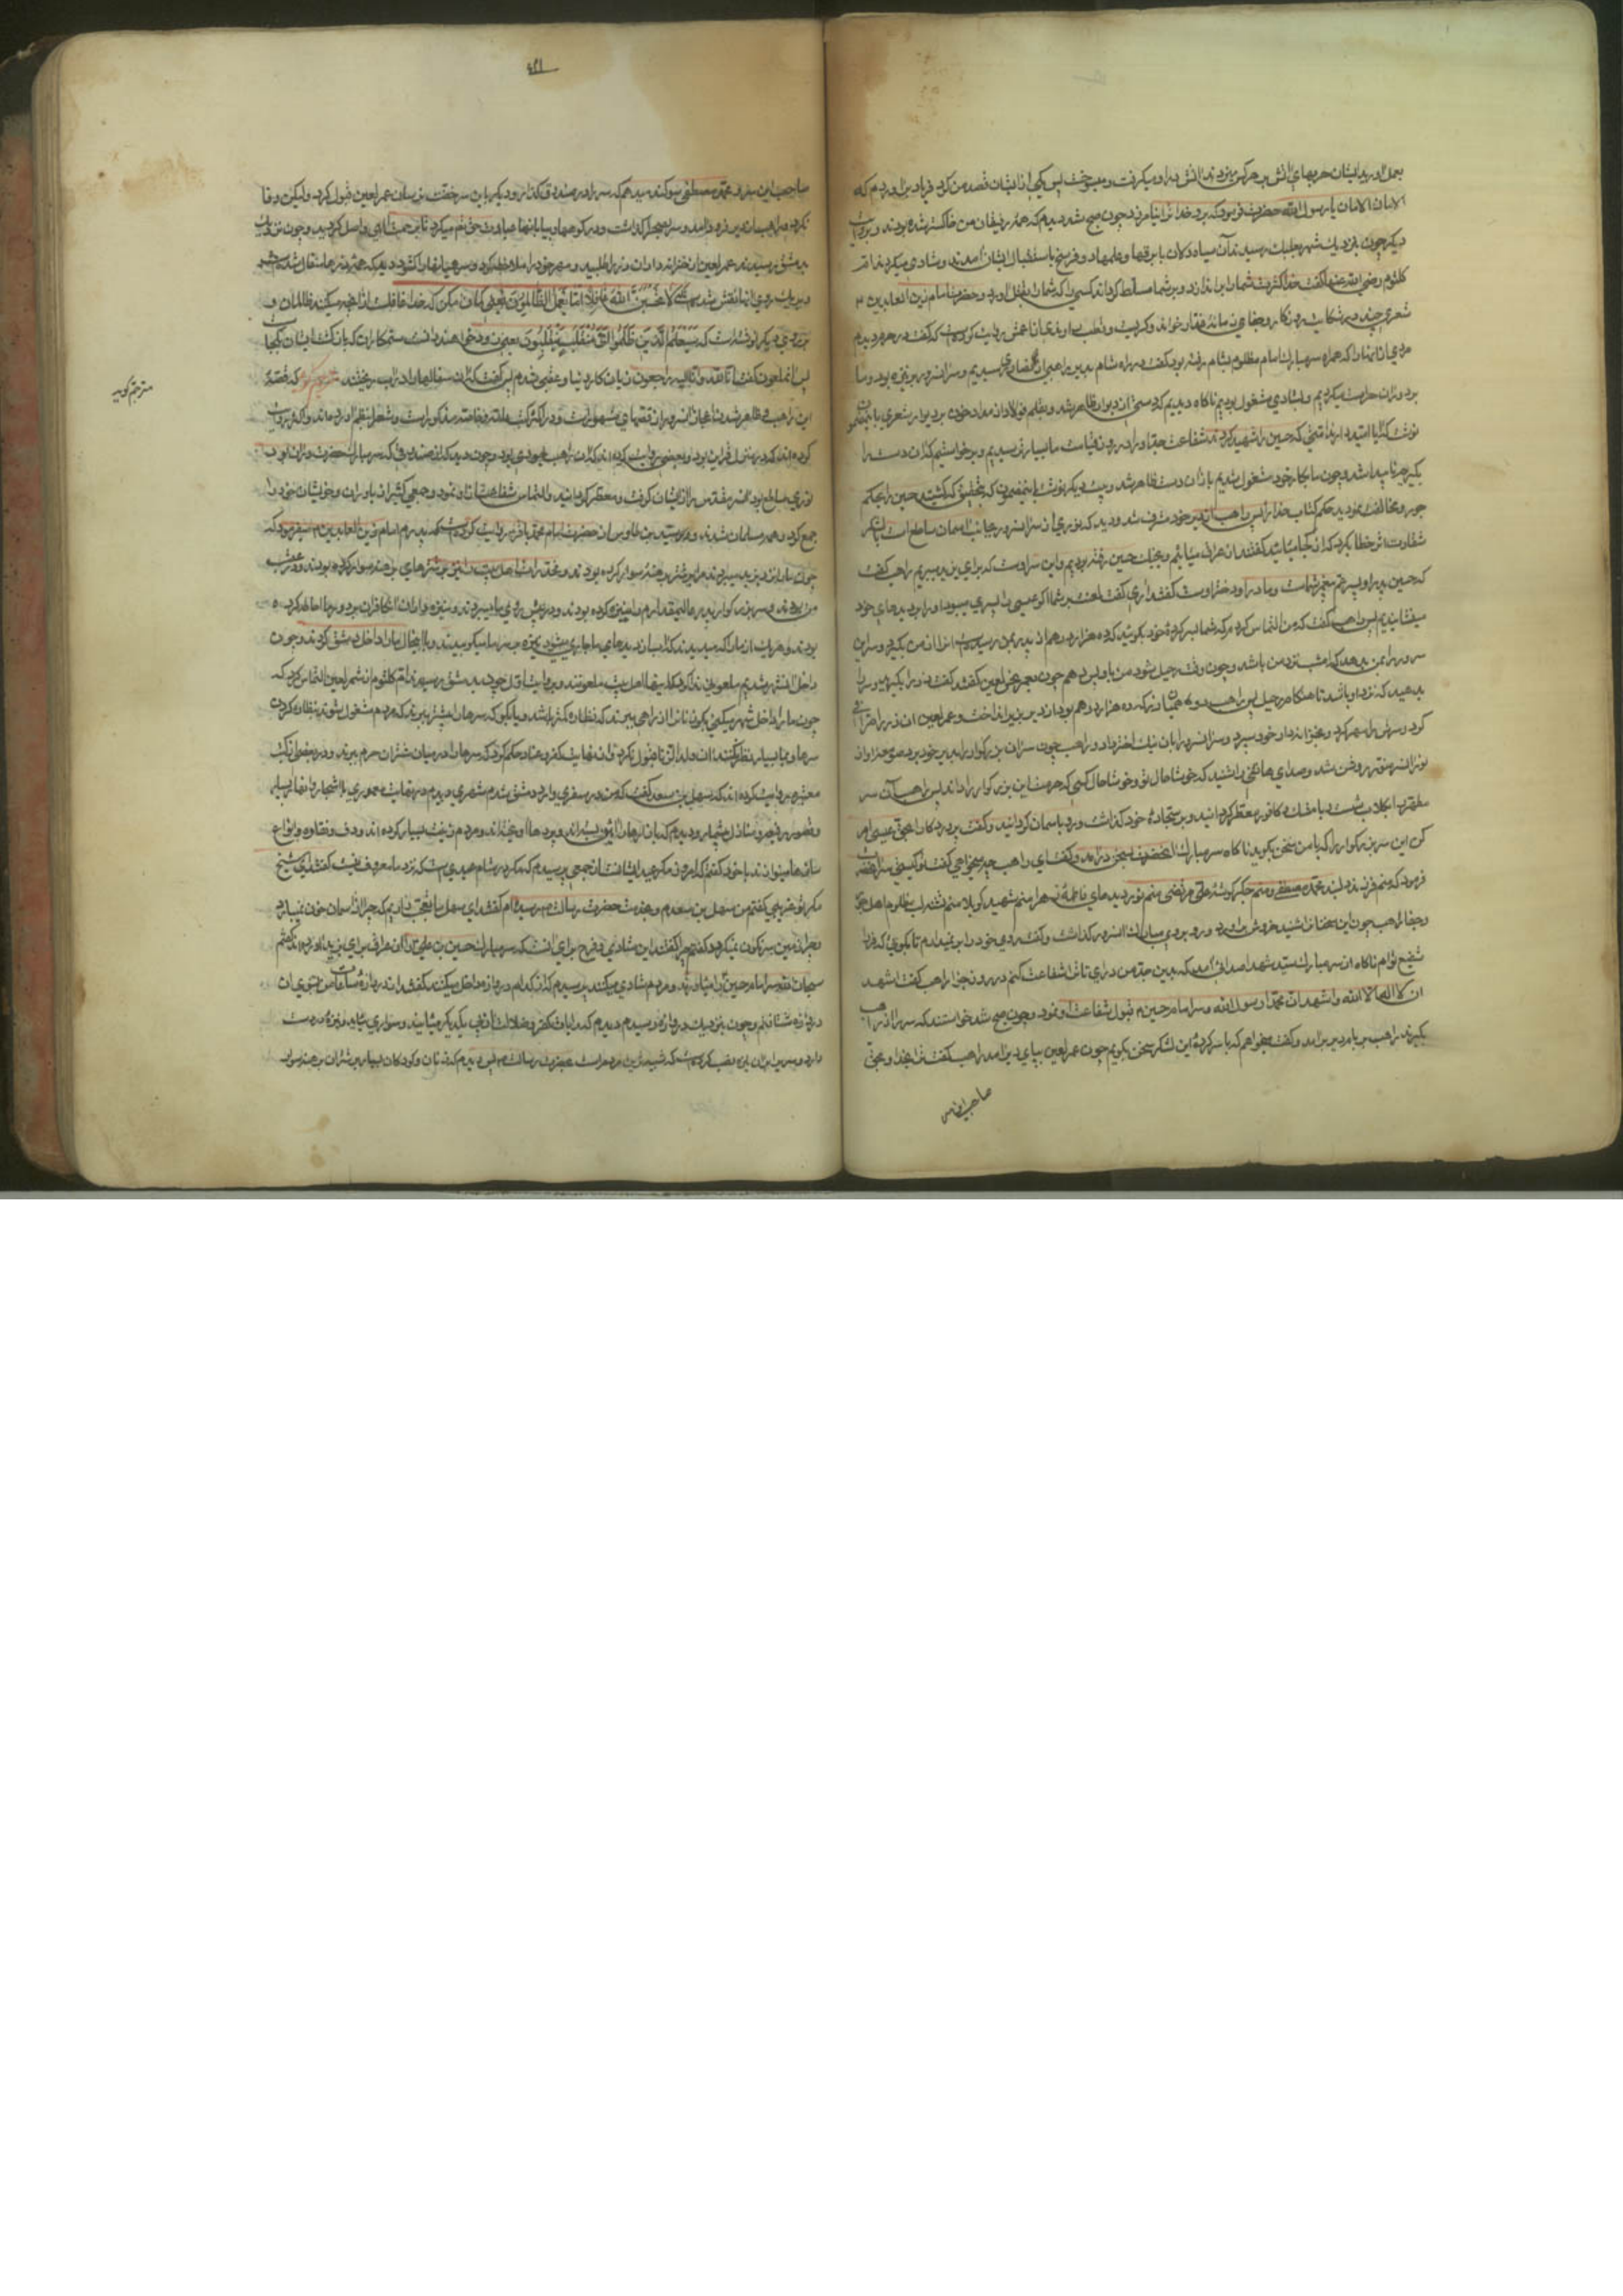 بعمل اوردند ایشان حربهای اتش بر هرکه میزدند اتش در او میگرفت و میسوخت پس یکی از ایشان قصد من کرد فریاد براوردم که
الامان الامان یا رسول الله حضرت فرمود که برو خدا ترا نیامرزد چون صبح شد دیدم که همه رفیقان من خاکستر شده بودند و بروایت
دیگر چون بنزدیک شهر بعلبک رسیدند آن سیاه دلان با برقها و علمها و دف و فرح باستقبال ایشان آمدند و شادی میکردند ام
کلثوم رضی الله عنها گفت خدا کثرت شما را براندازد و بر شما مسلط گرداند کسی را که شما را بقتل اورد و حضرت امام زین العابدین ۴
شعری چند در شکایت روزگار و جفای زمانه غدار خواند و گریست و بعضی از اعمش روایت کرده‌اند که گفت در حرم دیدم
مردی از انها را که همراه سر مبارک امام مظلوم بشام رفته بود گفت در راه شام بدیر راهبی از نصاری رسیدیم و سر انسرور بر نیزه بود و ما
بر دور ان حراست میکردیم و بشادی مشغول بودیم ناگاه دیدیم که دستی از دیوار ظاهر شد و بقلم فولاد از مداد خون بر دیوار شعری باین مضمون
نوشت که ایا امید دارند امتی که حسین را شهید کردند شفاعت جد او را در روز قیامت ما بسیار ترسیدیم و برخواستیم که ان دست را
بگیریم ناپیدا شد چون ما بکار خود مشغول شدیم باز ان دست ظاهر شد و بیت دیگر نوشت باین مضمون که بتحقیق که کشتید حسین را بحکم
جور و مخالفت نمودید حکم کتاب خدا را پس راهب از دیر خود مشرف شد و دید که نوری از سر انسرور بجانب اسمان ساطع است بلشکر
شقاوت اثر خطاب کرد که از کجا میائید گفتند از عراق میائیم و بجنک حسین رفته بودیم و این سر اوست که برای یزید میبریم راهب گفت
که حسین پدر او پسر عم پیغمبر شماست و مادر او دختر اوست گفتند اری گفت لعنت بر شما اگر عیسی را پسری میبود او را بر دیده‌های خود
مینشاندیم پس راهب گفت که من التماس دارم که شما بسرکرده خود بگوئید که ده هزار درهم از پدر بمن رسیده است انرا از من بگیرد و سر این
سرور را بمن بدهد که امشب نزد من باشد و چون وقت رحیل شود من باو پس دهم چون بعمر نحس لعین گفتند گفت زر را بگیرید و سر را
بدهید که نزد او باشد تا هنگام رحیل پس راهب دو همیان زر که ده هزار درهم بود از دیر بزیر انداخت و عمر لعین ان زر را صرافی
کرد و سرش را مهر کرد و بخزانه‌دار خود سپرد و سر انسرور را بان نیک اختر داد و راهب چون سر ان بزرگوار را بدیر خود برد صومعه او از
نور انسرور منور و روشن شد و صدای هاتفی را شنید که خوشا حال تو و خوشا حال کسی که حرمت این بزرگوار را داند پس راهب آن سر
مطهر را بگلاب شست و با مشک و کافور معطر گردانید و بر سجاده خود گذاشت و رو باسمان گردانید و گفت پروردگارا بحق عیسی امر
کن این سر بزرگوار را که با من سخن بگوید ناگاه سر مبارک انحضرت بسخن درامد و گفت ای راهب چه میخواهی گفت تو کیستی سر انحضرت
فرمود که منم فرزند دلبند محمد مصطفی و منم جگر گوشه علی مرتضی منم نور دیده‌های فاطمه زهرا منم شهید کربلا منم تشنه لب مظلوم اهل جور
و جفا راهب چون این سخنان شنید خروش براورد و رو بر روی مبارک انسرور گذاشت و گفت روی خود را برنمیدارم تا بگوئی که فردا
شفیع توام ناگاه ان سر مبارک سید شهدا صدا امد که بدین جد من درای تا ترا شفاعت کنم در روز جزا راهب گفت اشهد
ان لا اله الا الله و اشهد ان محمدا رسول الله و سر امام حسین ۴ قبول شفاعت او نمود و چون صبح شد خواستند که سر را از راهب
بگیرند راهب بر بام دیر برامد و گفت میخواهم که با سرکرده این لشکر سخن بگویم چون عمر لعین بپای دیر امد راهب گفت ترا بخدا و بحق
صاحب این سر
۴۲۱
صاحب این سر و محمد مصطفی سوگند میدهم که سر را در صندوق گذار و دیگر باین سر خفت نرسان عمر لعین قبول کرد ولیکن وفا
نکرد و راهب از دیر فرود امد و سر بصحرا گذاشت و در کوهها و بیابانها عبادت حق تعالی میکرد تا برحمت الهی واصل گردید و چون نزدیک
بدمشق رسیدند عمر لعین از خزانه‌دار ان زر را طلبید و مهر خود را ملاحظه کرد و سر همیانها را گشود دید که همه زرها سفال شده است
و بر یک روی انها نقش شده است که لا تحسبن الله غافلا عما یعمل الظالمون یعنی گمان مکن که خدا غافلست از انچه میکنند ظالمان و
بر روی دیگر نوشته است که سیعلم الذین ظلموا ای منقلب ینقلبون یعنی زود خواهند دانست ستمکاران که بازگشت ایشان بکجاست
پس انملعون گفت انا لله و انا الیه راجعون زیان کار دنیا و عقبی شدم پس گفت که ان سفالها را در اب ریختند مترجم گوید که قصه
این راهب و ظاهر شدن اعجاز انسرور از قصهای مشهور است و در اکثر کتب عامه و خاصه مذکور است
کرده‌اند که در منزل قنسرین بود و بعضی روایت کرده‌اند که ان راهب یهودی بود و چون دید که از صندوقی که سر مبارک حضرت در ان بود
نوری ساطع بود سر مقدس را از ایشان گرفت و معطر گردانید و التماس شفاعت از او نمود و جمعی کثیر از یاوران و خویشان خود را
جمع کرد و همه مسلمان شدند و سید بن طاوس از حضرت امام محمد باقر روایت کرده است که پدرم امام زین العابدین ۴ میفرمود که
چون ما را نزد یزید میبردند مرا بر شتر برهنه سوار کرده بودند و مخدرات اهل بیت را نیز بر شترهای برهنه سوار کرده بودند و در عقب
بودند و هر یک از ما را که میدیدند که اب از دیده‌های ما جاری میشود نیزه بر سر ما میکوبیدند و با اینحال ما را داخل دمشق کردند و چون
داخل انشهر شدیم ملعونی ندا کرد که اینها اهل بیت ملعونند و بروایت اول چون بدمشق رسیدند ام کلثوم از شمر لعین التماس کرد که
چون ما را داخل شهر میکنی بگو تا ما را از راهی ببرند که نظاره کمتر باشد و بگو که سرها را پیشتر ببرند که مردم مشغول شوند بنظاره کردن
سرها و بما بسیار نظر نکنند ان ولد الزنا قبول نکرد و از نهایت کفر و عناد حکم کرد که سرها را در میان شتران حرم ببرند و در بعضی از کتب
معتبره روایت کرده‌اند که سهل بن سعد گفت که من در سفری وارد دمشق شدم شهری دیدم در نهایت معموری با اشجار و انهار بسیار
و قصور رفیعه و منازل بیشمار و دیدم که بازارها را ائین بسته‌اند و پرده‌ها اویخته‌اند و مردم زینت بسیار کرده‌اند و دف و نقاره و انواع
سازها مینوازند با خود گفتم که امروز مگر عید ایشانست از جمعی پرسیدم که مگر در شام عیدی هست که نزد ما معروف نیست گفتند ای شیخ
مگر تو غریبی گفتم من سهل بن سعدم و بخدمت حضرت رسالت ۴ رسیده‌ام گفتند ای سهل ما تعجب داریم که چرا از اسمان خون نمیبارد
و چرا زمین سرنگون نمیگردد گفتم چرا گفتند این شادی و فرح برای انست که سر مبارک حسین بن علی را از عراق برای یزید آورده‌اند گفتم
سبحان الله سر امام حسین را میاورند و مردم شادی میکنند پرسیدم که از کدام دروازه داخل میکنند گفتند از دروازه ساعات من بسوی ان
دروازه شتافتم و چون بنزدیک دروازه رسیدم دیدم که رایات کفر و ضلالت از پی یکدیگر میایند و سواری میاید و نیزه در دست
دارد و سر بر ان نیزه نصب کرده است که شبیه‌ترین مردم است بحضرت رسالت ۴ پس دیدم که زنان و کودکان بسیار بر شتران برهنه سوار
مترجم گوید